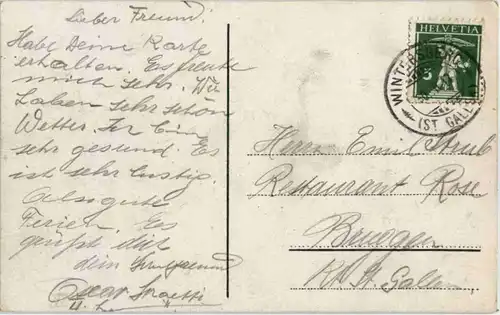 Lieber Freund.
Habe Deine Karte
erhalten. Es freute
mich sehr. Wir
haben sehr schön
Wetter. Ich bin
sehr gesund. Es
ist sehr lustig.
Also gute
Ferien. Es
grüsst dich
dein
Oscar
HELVETIA
5
WINTERS
(ST. GALLEN)
Herrn Emil Straub
Restaurant Rose
Bruggen
Kt. St. Gallen